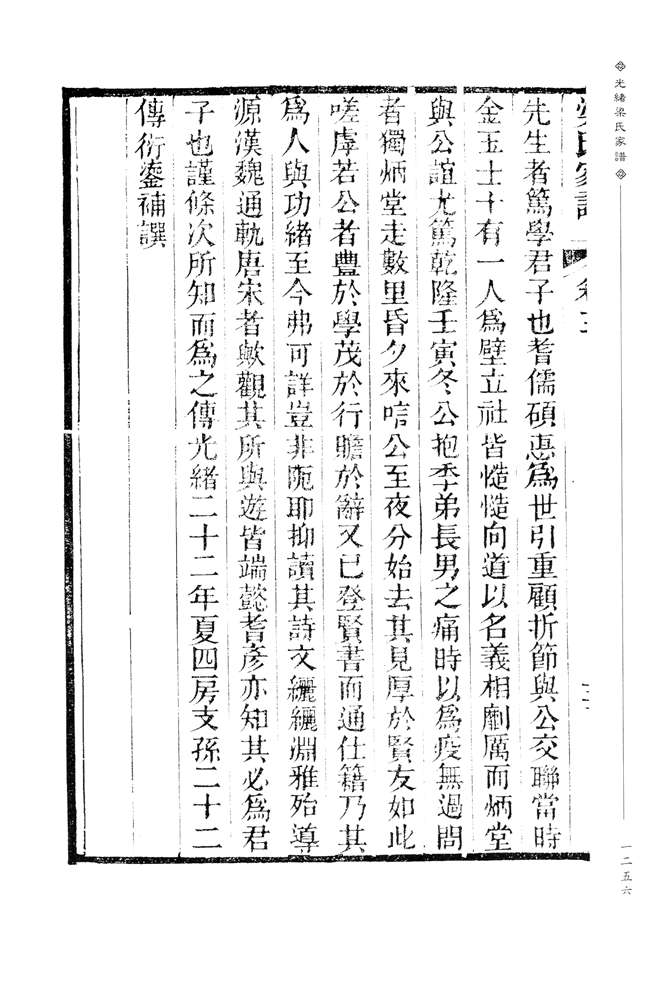 光緒梁氏家譜
一二五六
梁氏家譜 卷
先生者篤學君子也耆儒碩悳為世引重顧折節與公交聯當時
金玉士十有一人爲壁立社皆慥慥向道以名義相劘厲而炳堂
與公誼尤篤乾隆壬寅冬公抱季弟長男之痛時以爲疫無過問
者獨炳堂走數里昏夕來唁公至夜分始去其見厚於賢友如此
嗟虖若公者豊於學茂於行贍於辭又已登賢書而通仕籍乃其
爲人與功緒至今弗可詳豈非阨耶抑讀其詩文纚纚淵雅殆導
源漢魏通軌唐宋者歟觀其所與遊皆端懿耆彦亦知其必爲君
子也謹條次所知而爲之傳光緒二十二年夏四房支孫二十二
傳衍鎏補譔